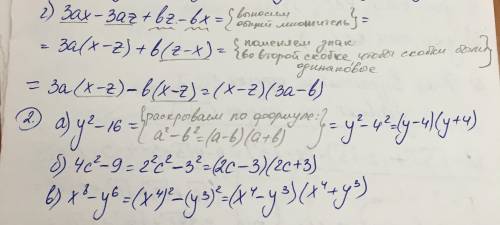 г) 3ax - 3az + bz - bx = {выносим общий множитель} =
= 3a(x-z) + b(z-x) = {поменяем знак во второй скобке, чтобы скобки были одинаковые}
= 3a(x-z) - b(x-z) = (x-z)(3a-b)
2. а) y² - 16 = {раскрываем по формуле: a² - b² = (a-b)(a+b)} = y² - 4² = (y-4)(y+4)
б) 4c² - 9 = 2²c² - 3² = (2c-3)(2c+3)
в) x⁸ - y⁶ = (x⁴)² - (y³)² = (x⁴ - y³)(x⁴ + y³)